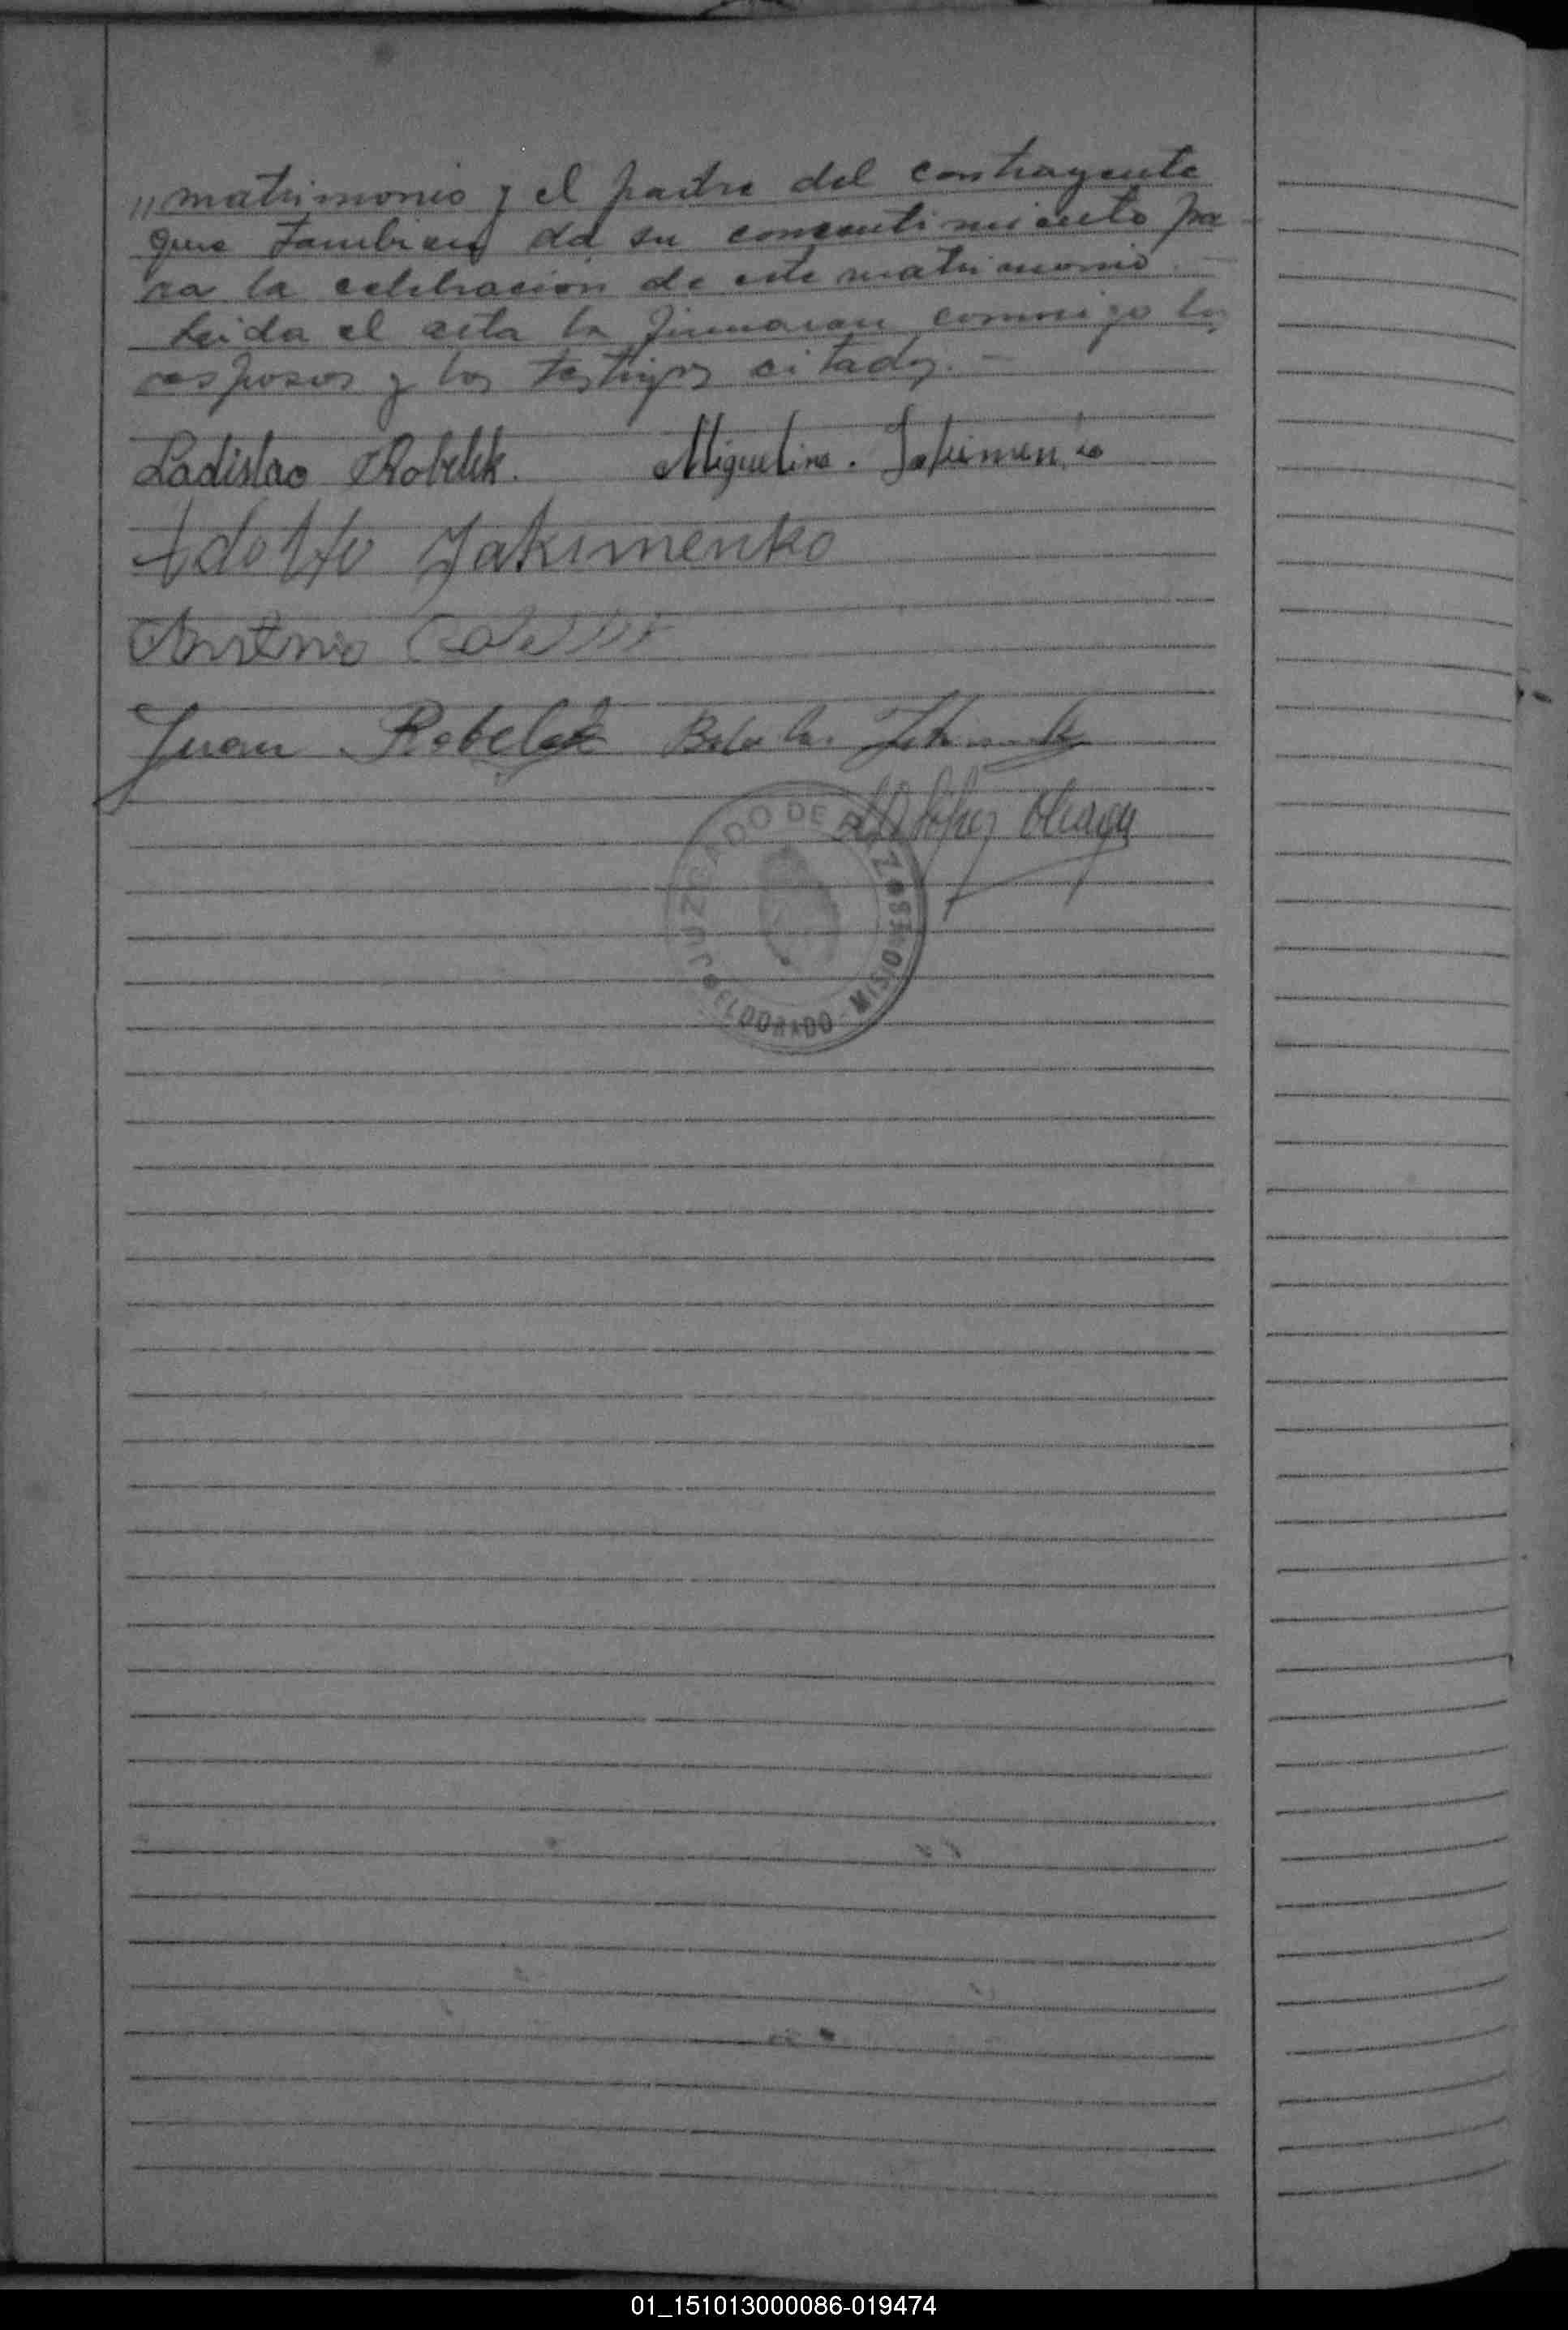 "matrimonio y el padre del contrayente
que tambien dá su consentimiento pa-
ra la celebracion de este matrimonio.-
Leida el acta la firmaran conmigo los
esposos y los testigos citados.-
Ladislao Robelek. Miguelina. Jakimenko
Adolfo Yakimenko
Antonio
Juan Robelek
López
JUZGADO DE PAZ
ELDORADO - MISIONES
01_151013000086-019474